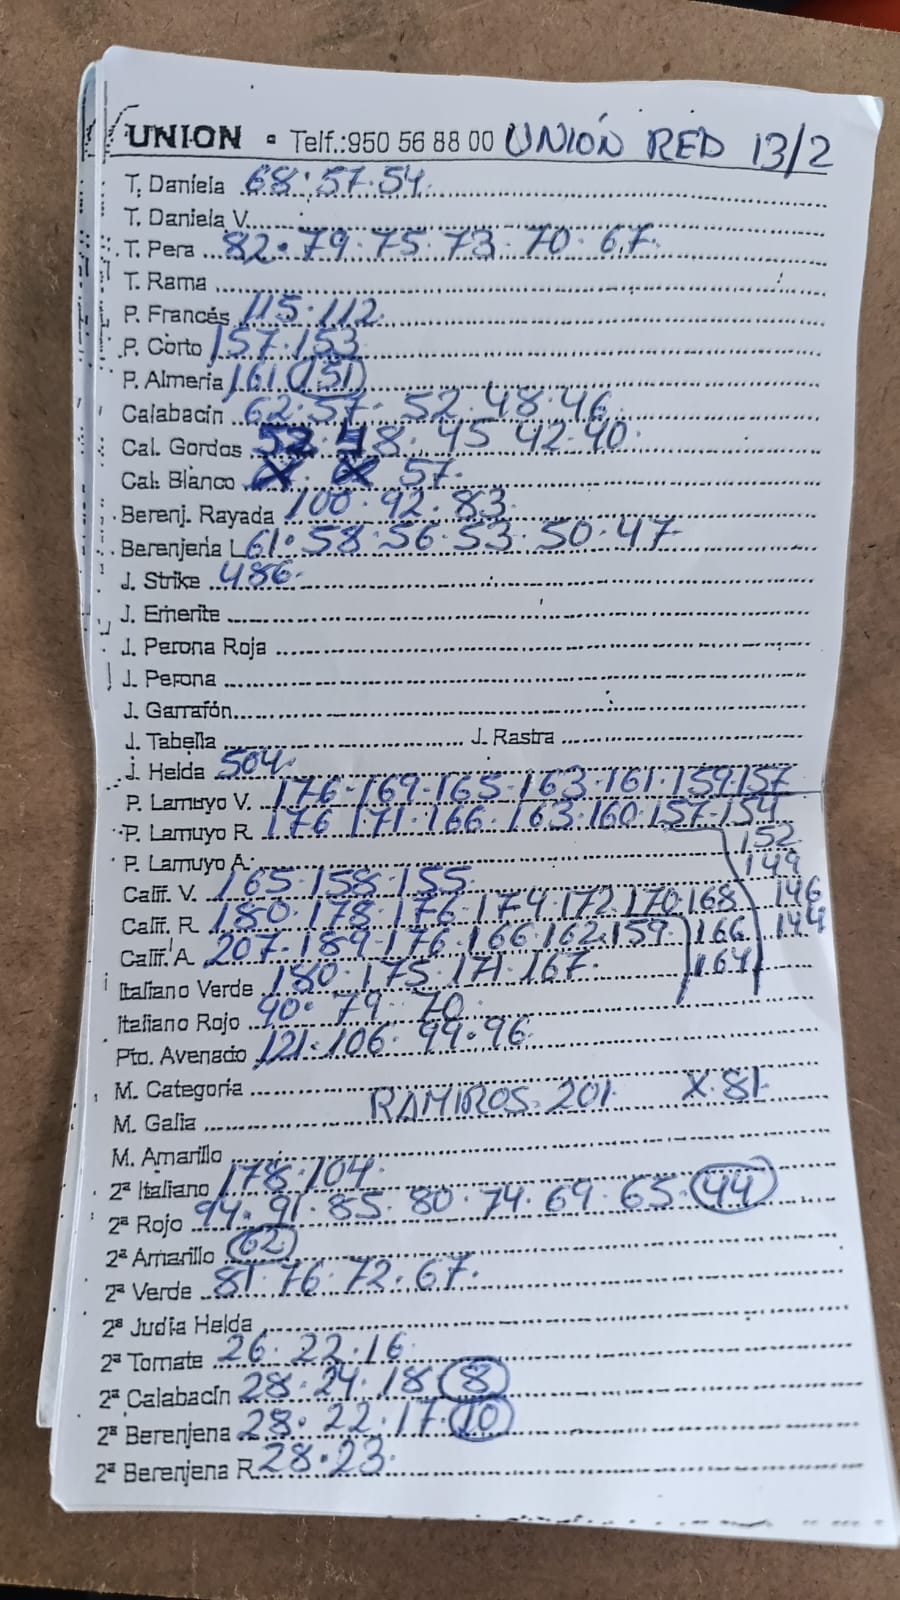 UNION - Telf.:950 56 88 00 UNIÓN RED 13/2
T. Daniela 68.57.54.
T. Daniela V.
T. Pera 82.79.75.73.70.67.
T. Rama
P. Francés 115.112.
P. Corto 157.153
P. Almería 161 (151)
Calabacín 62.57.52.48.46.
Cal. Gordos 52.48.45 42.40.
Cal. Blanco 57.
Berenj. Rayada 100.92.83.
Berenjena L 61.58.56.53.50.47
J. Strike 486.
J. Emerite
J. Perona Roja
J. Perona
J. Garrafón
J. Tabella J. Rastra
J. Helda 504.
P. Lamuyo V. 176.169.165.163.161.159.157
P. Lamuyo R. 176 171.166.163.160.157.154
152
P. Lamuyo A.
149
Calif. V. 165.158.155.
146
Calif. R. 180.178.176.174.172.170.168
144
Calif. A. 207.189.176.166.162.159 166
164
Italiano Verde 180.175.171.167.
Italiano Rojo 90.79.70.
Pto. Avenado 121.106.99.96.
M. Categoría
M. Galia RAMIROS.201. X.81.
M. Amarillo
2ª Italiano 178.104.
2ª Rojo 94.91.85.80.74.69.65.(44)
2ª Amarillo (62)
2ª Verde 81.76.72.67.
2ª Judía Helda
2ª Tomate 26.22.16.
2ª Calabacín 28.24.18 (8)
2ª Berenjena 28.22.17.(10)
2ª Berenjena R. 28.23.